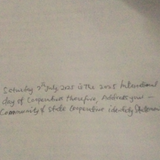 Saturday 7th July 2018 is the 2018 International
day of Cooperatives therefore, Address your
Community of State Cooperative identity Statement